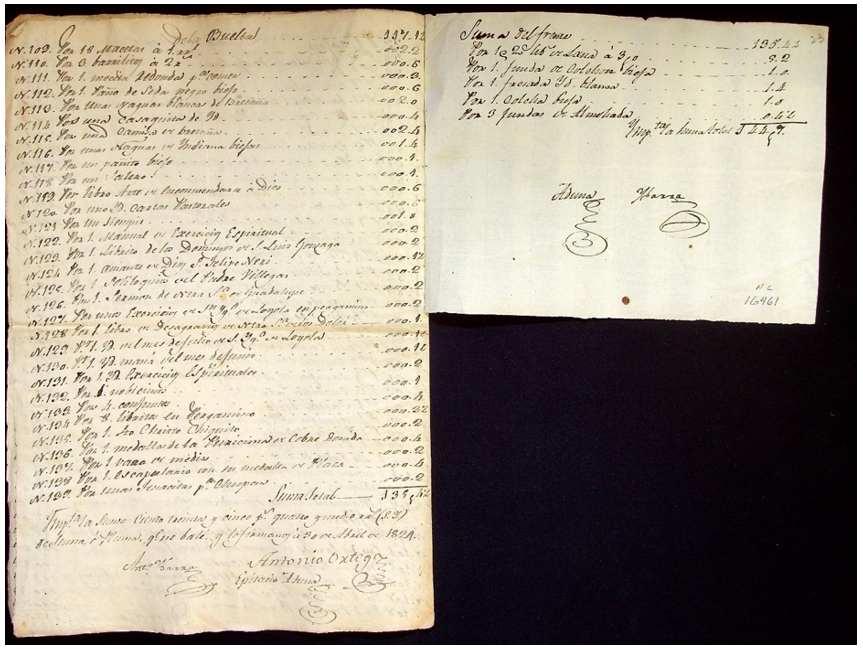 De la Buelta 117.1½
N.109. Por 18 Macetas á 1 rr.l 002.2
N.110. Por 3 barrilitos á 2 r.s 000.6
N.111. Por 1. mesita redonda p.a comer 000.3
N.112. Por 1. Paño de Seda negro biejo 000.6
N.113. Por unas naguas blancas de bretaña 002.0
N.114. Por una Casaquita de Yd. 000.4
N.115. Por una Camisa de bretaña 002.4
N.116. Por unas Naguas de Indiana biejas 001.4
N.117. Por un pañito biejo 000.1
N.118. Por un Salero 000.1
N.119. Por libro Arte de encomendarse a Dios 000.6
N.120. Por uno Yd. Cartas Pastorales 000.6
N.121. Por un 001.0
N.122. Por 1. Manual de Exercicios Espiritual 000.2
N.123. Por 1. Librito de los Domingos de S. Luis Gonzaga 000.2
N.124. Por 1. amante de Dios S. Felipe Neri 000.1½
N.125. Por 1. Soliloquio del Padre Villegas 000.2
N.126. Por 1. Sermon de Ntra Sra de Guadalupe 000.2
N.127. Por unos Exercicios de Sn. Ygn.o de Loyola en pergamino 000.2
N.128. Por 1 libro de Desagravios de Ntra Sra de los Dolores 000.1
N.129. Pr. 1. Yd. del mes de Julio de S. Ygn.o de Loyola 000.1½
N.130. Pr. 1. Yd. maná del mes de Junio 000.1½
N.131. Por 1. Yd. Exercicios Espirituales 000.2
N.132. Por nobicios 000.1
N.133. Por 4. 000.4
N.134. Por 8. libritos en Pergamino 000.3½
N.135. Por 1. Sto Christo Chiquito 000.2
N.136. Por 1. medalla de la Purisima de Cobre Dorada 000.4
N.137. Por 1. vara de media 000.2
N.138. Por 1. Escapulario con su medalla de Plata 000.4
N.139. Por unas p.a 000.2
Suma total 135,4½
Ymp.ta la Suma Ciento treinta y cinco p.s quatro y medio rr.s (S.Y)
de Suma, ó Pluma, q.e no bale, y lo firmamos á 30 de Abril de 1824.
Ant.o Ybarra Antonio Ortega
Ignacio Aduna
23
Suma del frente 135.4½
Por 1 @ 2 lb.s de Lana á 3 p.o 3.2
Por 1. funda de Colchon bieja 1.0
Por 1. fresada Yd. blanca 1.4
Por 1. Colcha bieja 1.0
Por 3 fundas de Almohada 0.4½
Ymp.ta la suma total $ 44,7.
Aduna Ybarra
16461